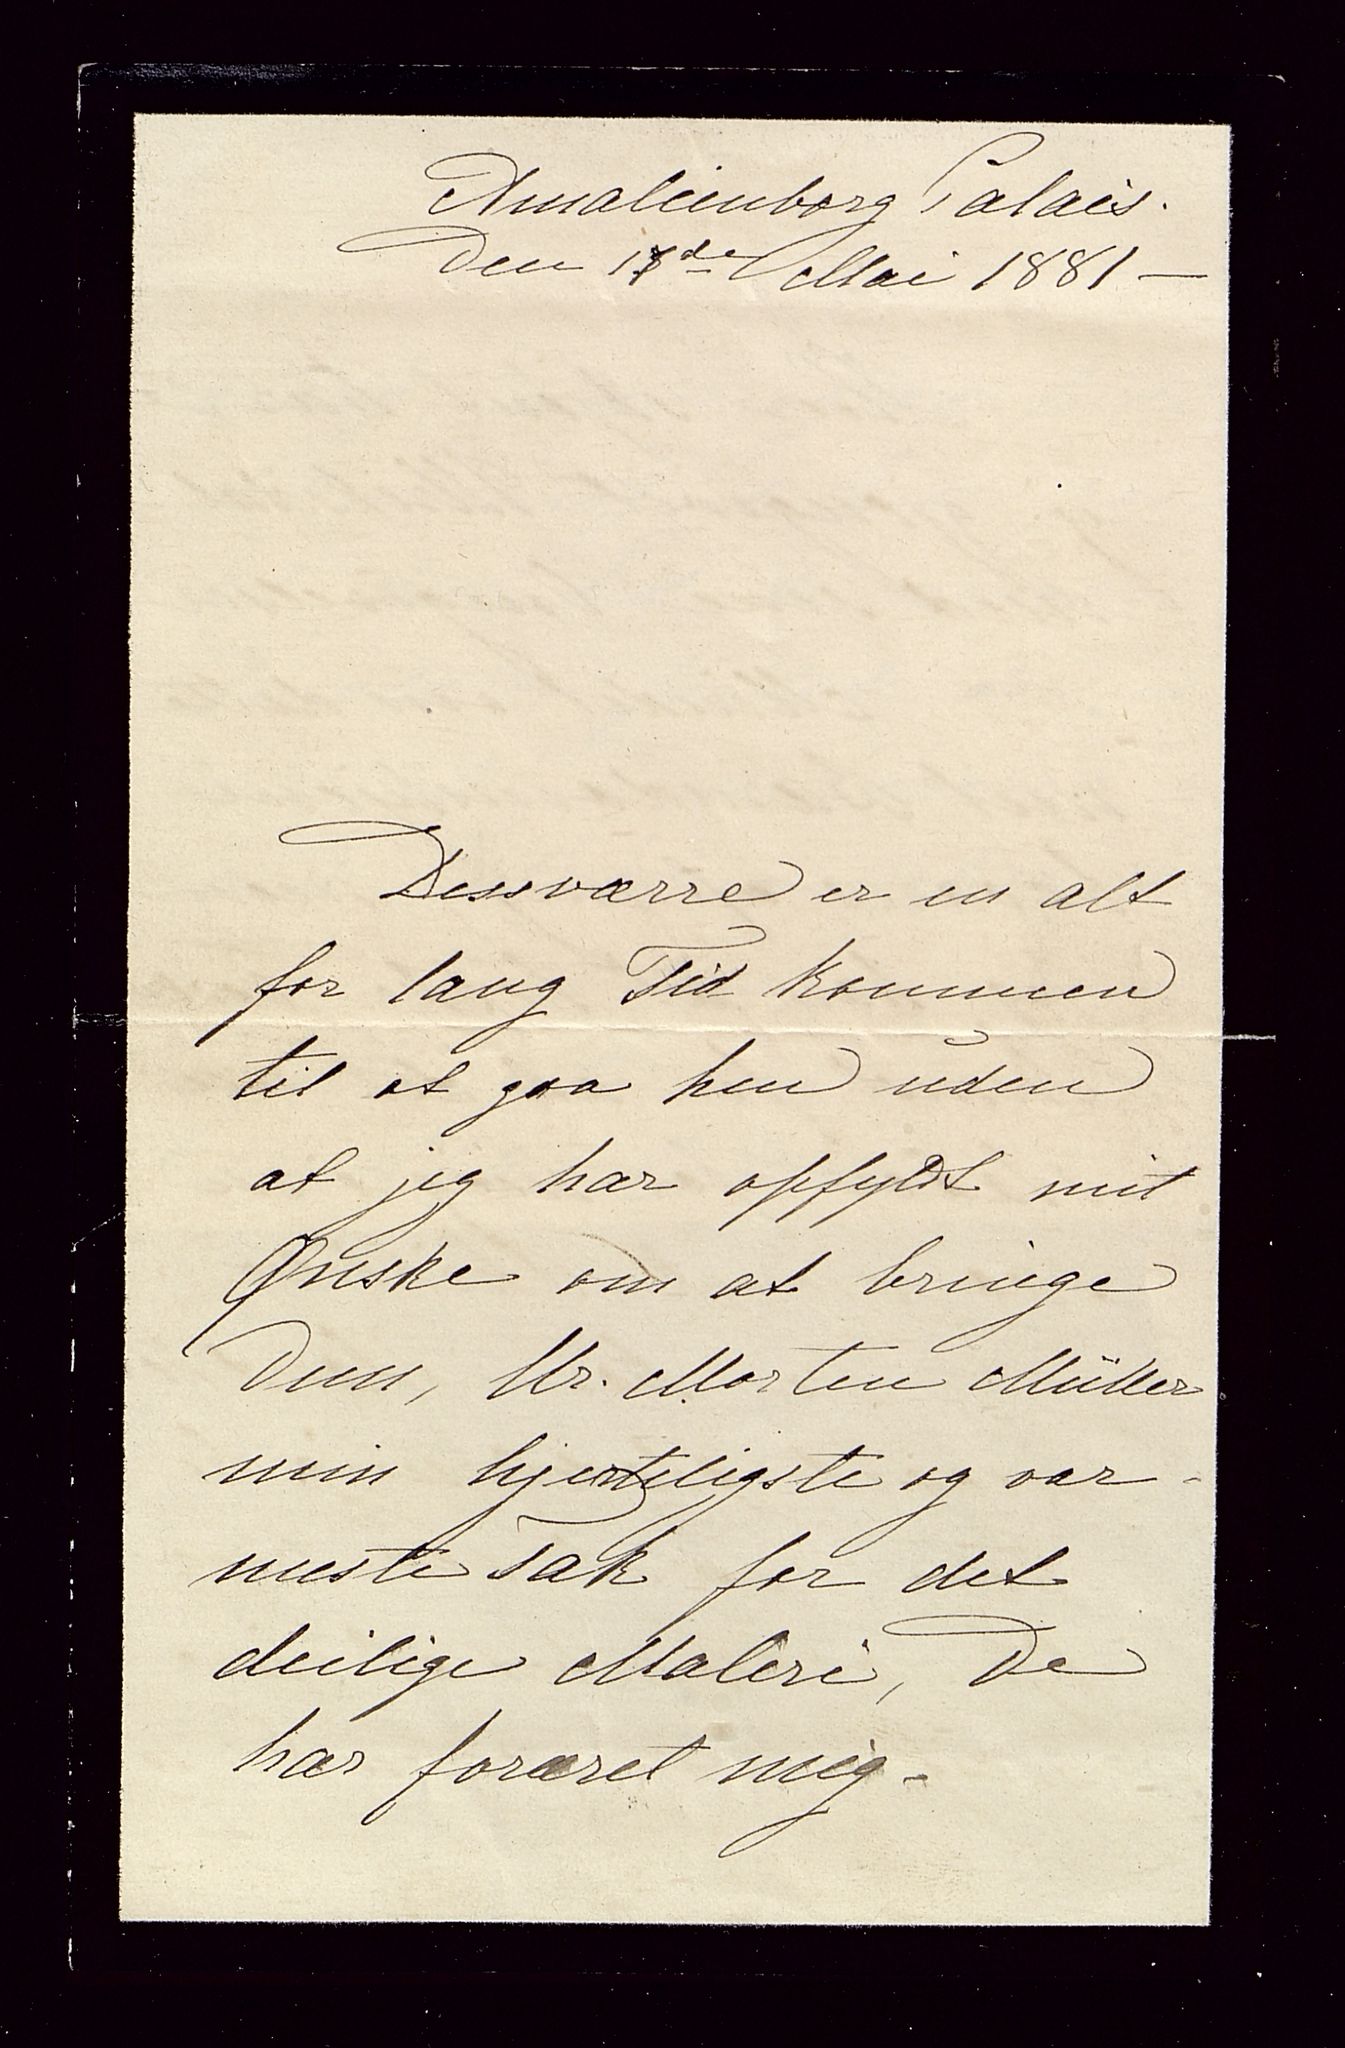 Amalienborg Palais.
Den 17de Mai 1881 —
Dessværre er en alt
for lang Tid kommen
til at gaa hen uden
at jeg har opfyldt mit
Ønske om at bringe
Dem, Hr. Morten Müller
min hjerteligste og var-
meste Tak for det
deilige Maleri, De
har foræret mig.